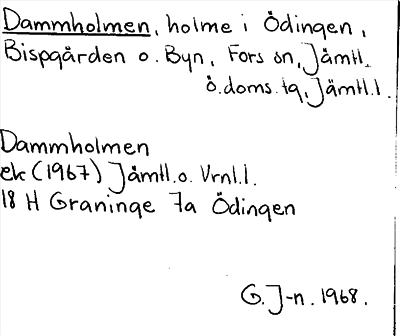 Dammholmen, holme i Ödingen,
Bispgården o. Byn, Fors sn, Jämtl.
ö. doms. tg, Jämtl. l.
Dammholmen
ek (1967) Jämtl. o. Vrnl. l.
18 H Graninge 7a Ödingen
G. J-n. 1968.